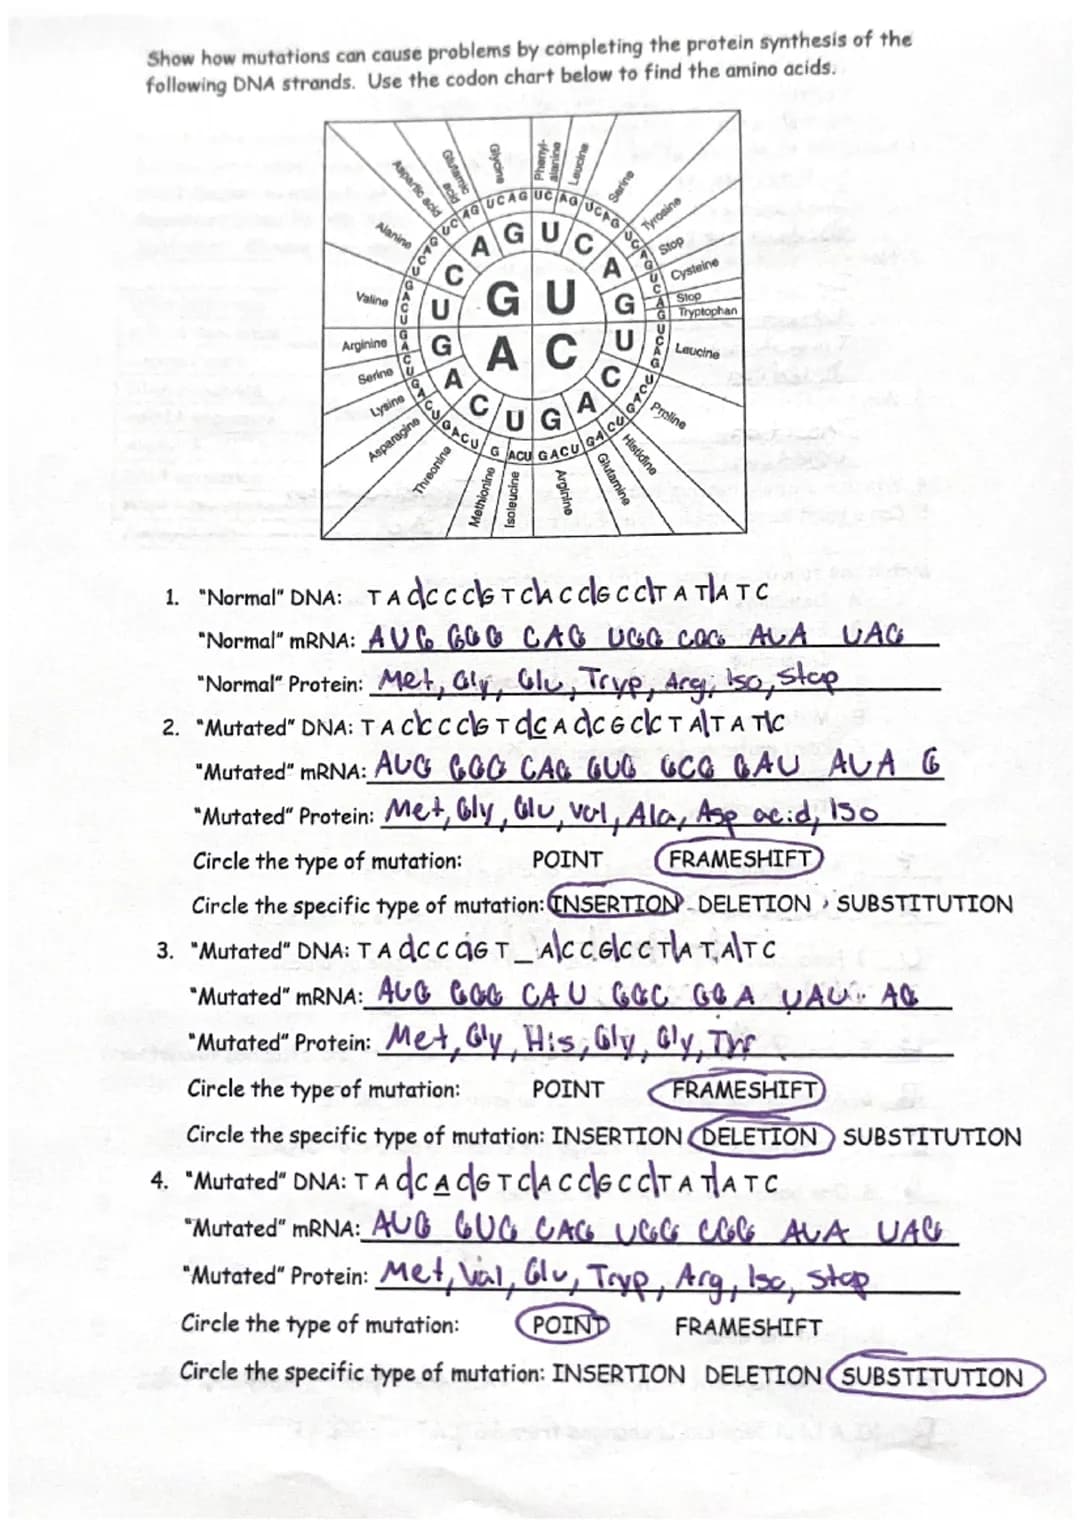 Show how mutations can cause problems by completing the protein synthesis of the
following DNA strands. Use the codon chart below to find the amino acids.
Alanine
Aspartic acid
Glutamic acid
Glycine
Phenyl-alanine
Leucine
Serine
Tyrosine
Stop
Cysteine
Stop
Tryptophan
Valine
Arginine
Serine
Lysine
Asparagine
Threonine
Methionine
Isoleucine
Arginine
Glutamine
Histidine
Proline
Leucine
G U
A C
1. "Normal" DNA: T A C C C C G T C A C C G C C T A T A T C
"Normal" mRNA: AUG GGG CAG UGG CGG AUA UAG
"Normal" Protein: Met, Gly, Glu, Tryp, Arg, Iso, Stop
2. "Mutated" DNA: T A C C C C G T C C A C C G C C T A T A T C
"Mutated" mRNA: AUG GGG CAG GUG GCG GAU AUA G
"Mutated" Protein: Met, Gly, Glu, Val, Ala, Asp acid, Iso
Circle the type of mutation: POINT FRAMESHIFT
Circle the specific type of mutation: INSERTION DELETION SUBSTITUTION
3. "Mutated" DNA: T A C C C C G T _ A C C G C C T A T A T C
"Mutated" mRNA: AUG GGG CAU GGC GGA UAU AG
"Mutated" Protein: Met, Gly, His, Gly, Gly, Tyr
Circle the type of mutation: POINT FRAMESHIFT
Circle the specific type of mutation: INSERTION DELETION SUBSTITUTION
4. "Mutated" DNA: T A C C A C G T C A C C G C C T A T A T C
"Mutated" mRNA: AUG GUG CAG UGG CGG AUA UAG
"Mutated" Protein: Met, Val, Glu, Tryp, Arg, Iso, Stop
Circle the type of mutation: POINT FRAMESHIFT
Circle the specific type of mutation: INSERTION DELETION SUBSTITUTION